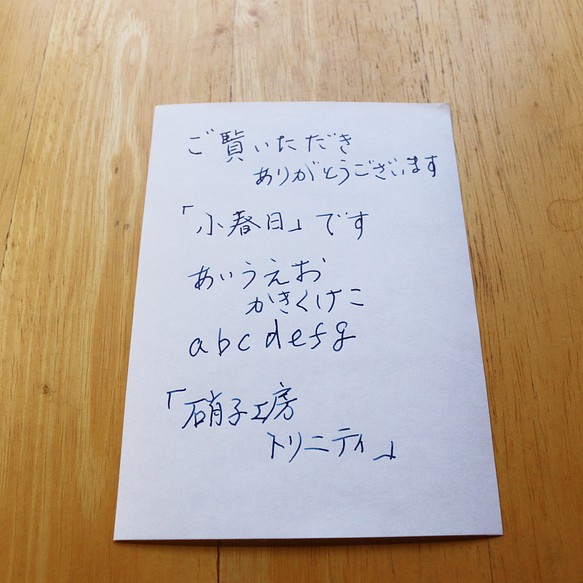 ご覧いただき
ありがとうございます
「小春日」です
あいうえお
かきくけこ
abcdefg
「硝子工房
トリニティ」